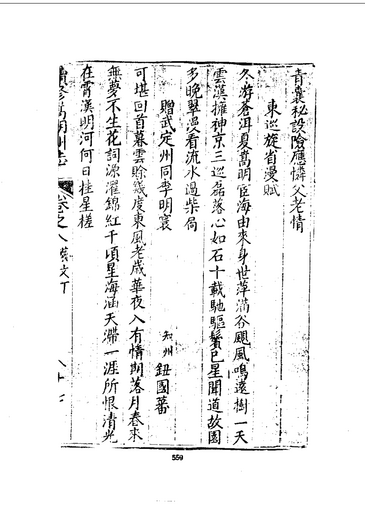 青囊秘設險應憐父老情
東巡旋省漫賦
冬游蒼洱夏嵩明宦海由來身世萍滿谷颶風鳴遠樹一天
雲漢擁神京三巡磊落心如石十載馳驅鬢已星聞道故園
多晚翠漫看流水過柴扃
贈武定州同李明寰
知州鈕國蕃
可堪回首暮雲賒幾度東風老歲華夜入有情期落月春來
無夢不生花詞源濯錦紅千頃星海涵天滯一涯所恨清光
在霄漢明河何日挂星槎
續修嵩明州志
卷之八藝文下
八十七
559